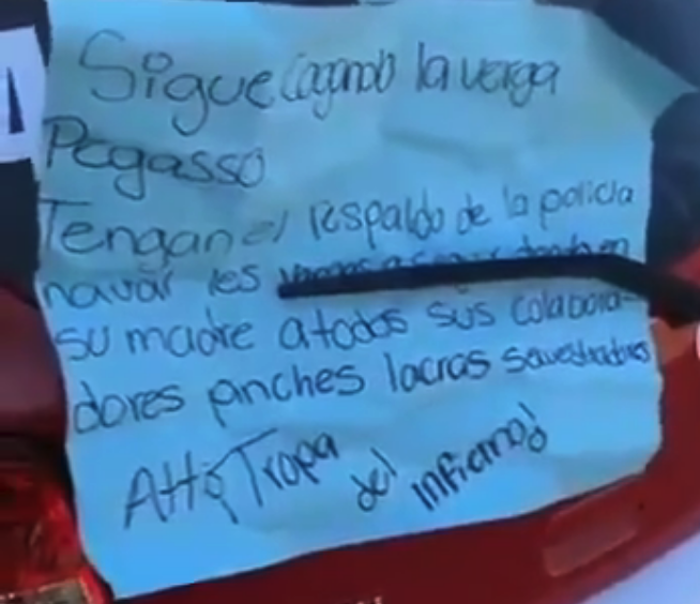 Sigue Cagando la verga
Pegasso
Tengan el respaldo de la policia
navar les
su madre a todos sus colabora-
dores pinches lacras secuestradores
Att: Tropa
del infierno!